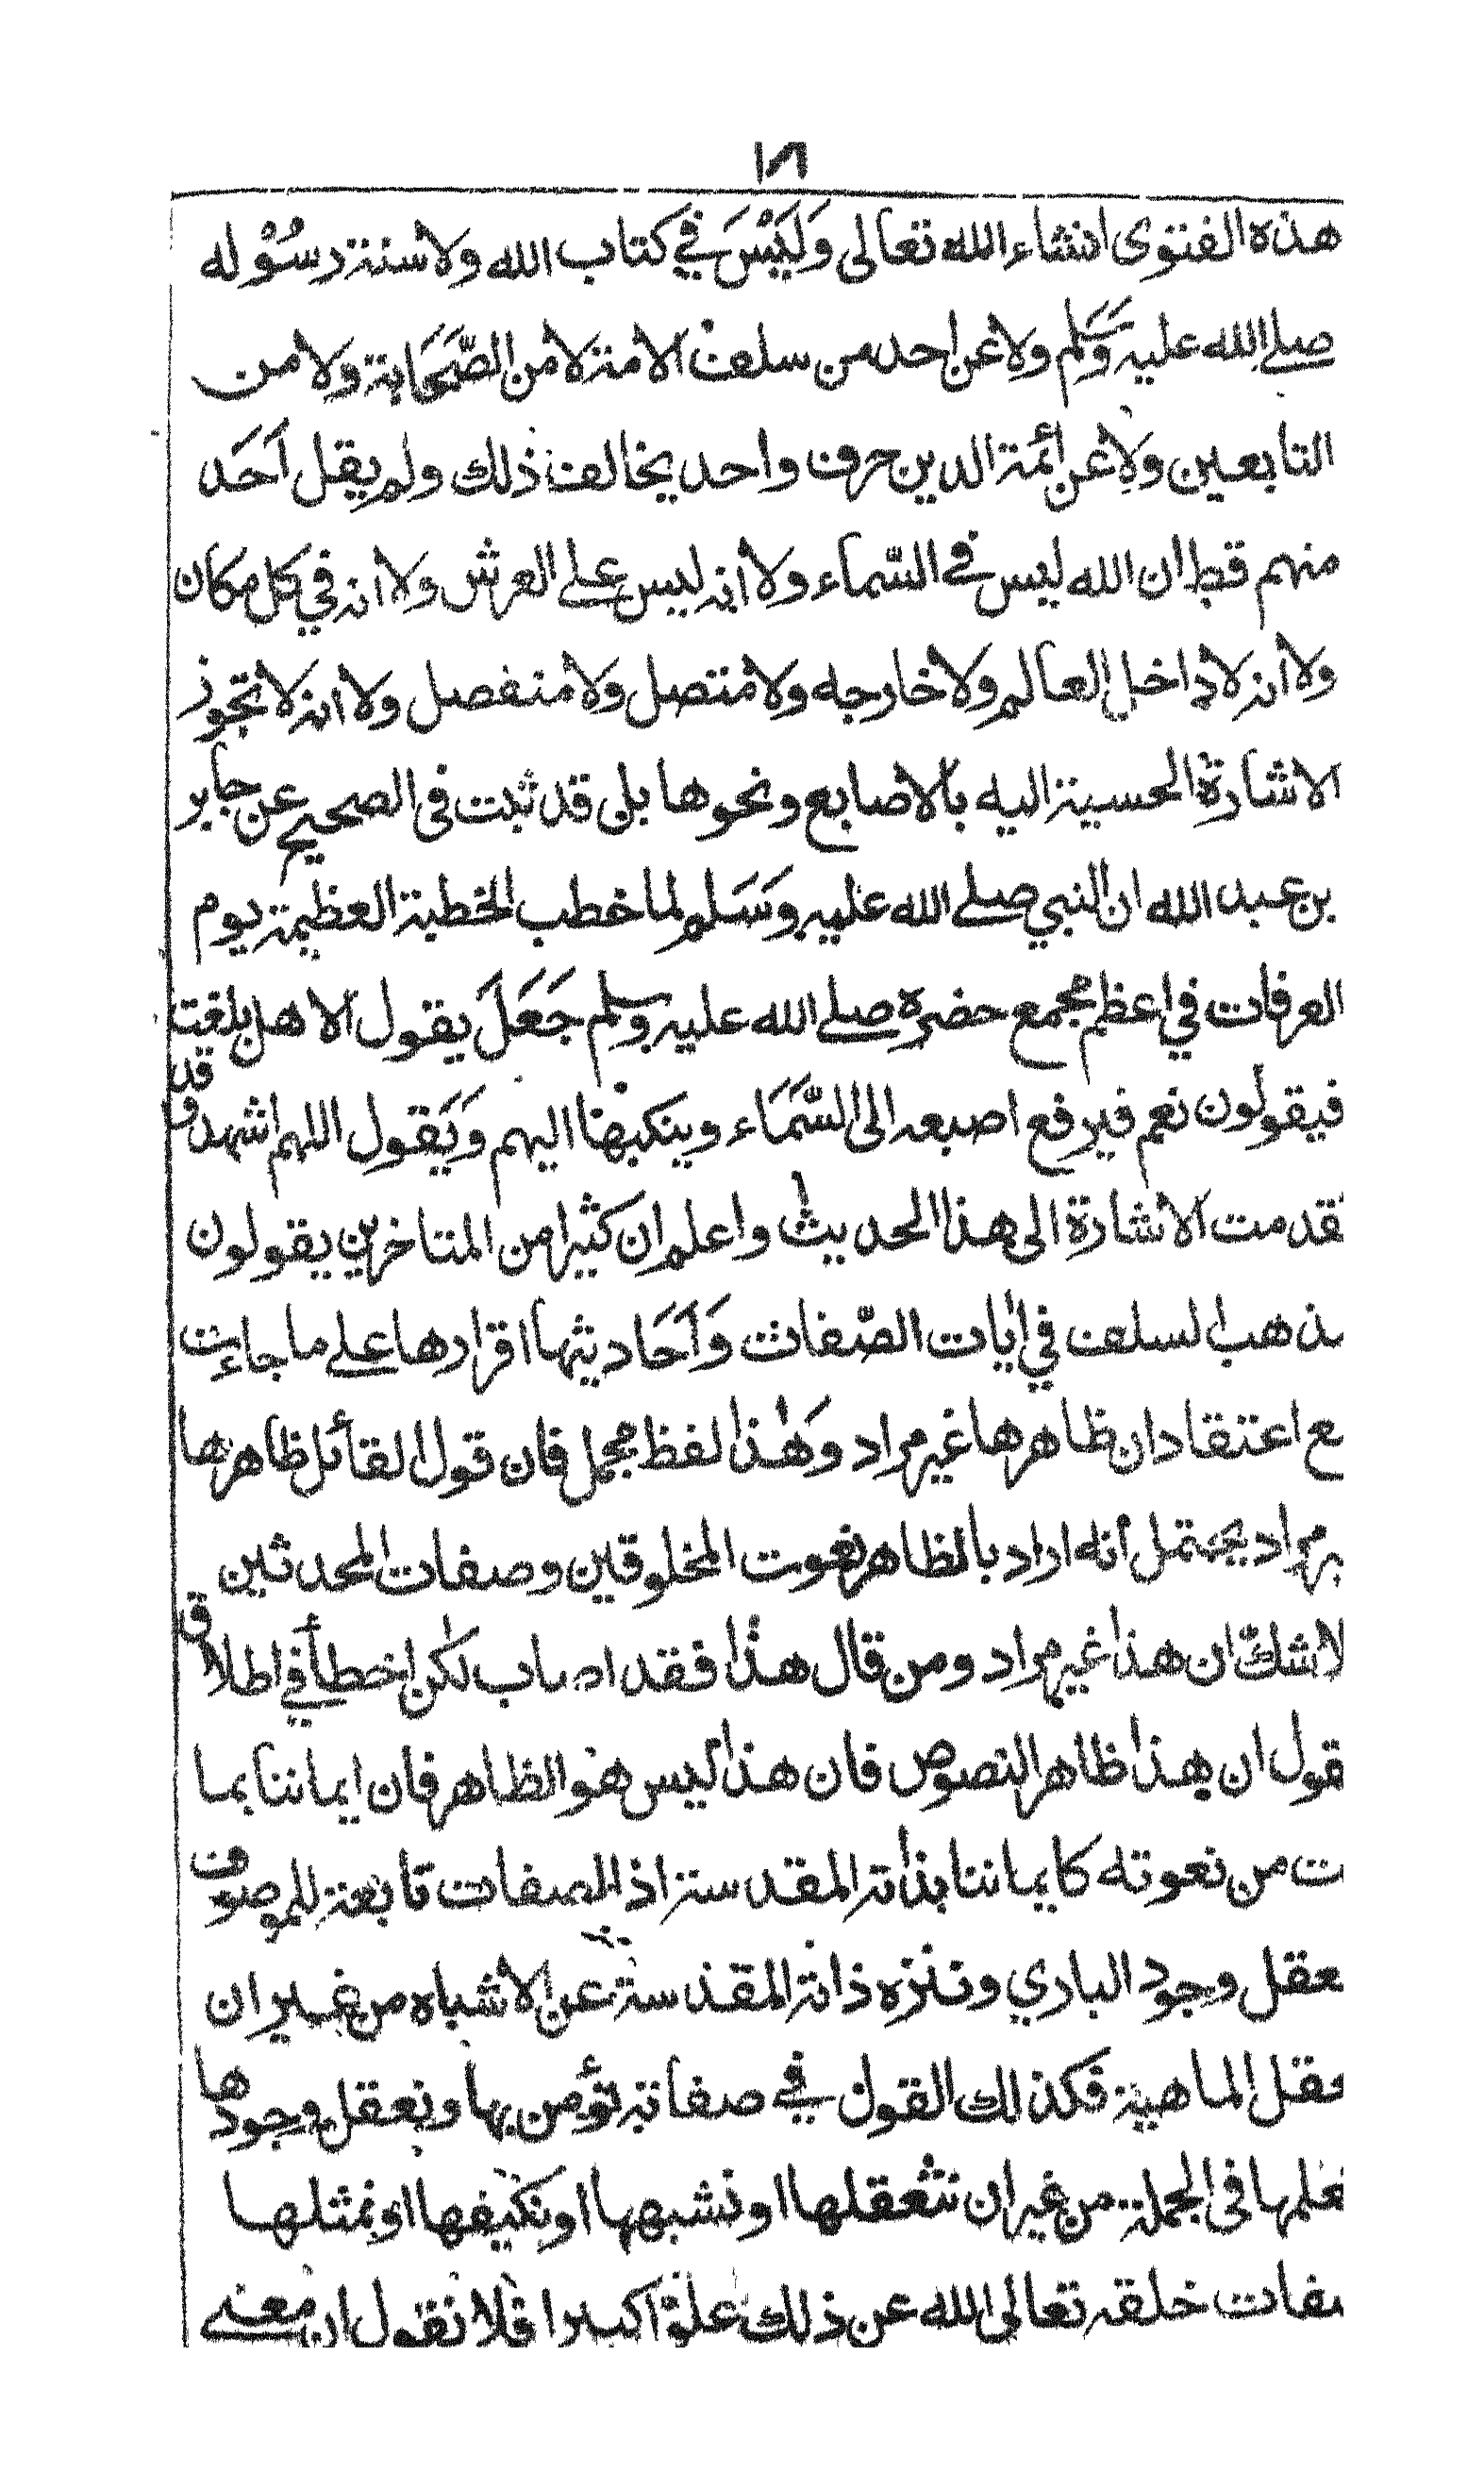 ١٨
هذه الفتوى انشاء الله تعالى وَلَيْسَ في كتاب الله ولا سنة رسُوْله
صلے الله عليه وَسَلم ولا عن احد من سلف الامة لا من الصَّحَابة ولا من
التابعين ولا عن أئمة الدين حرف واحد يخالف ذلك ولم يقل اَحَد
منهم قط ان الله ليس في السَّماء ولا انه ليس علے العرش ولا انه في كل مكان
ولا انه لا داخل العالم ولا خارجه ولا متصل ولا منفصل ولا انه لا تجوز
الاشارة الحسية اليه بالاصابع ونحوها بل قد ثبت فى الصحيح عن جابر
بن عبد الله ان النبي صلے الله عليه وَسَلم لما خطب الخطبة العظيمة يوم
العرفات في اعظم مجمع حضره صلے الله عليه وسلم جَعَلَ يقول الا هل بلغت
فيقولون نعم فيرفع اصبعه الى السَّمَاء وينكبها اليهم وَيَقول اللهم اشهد وقد
تقدمت الاشارة الى هذا الحديث واعلم ان كثيرا من المتاخرين يقولون
مذهب السلف في ايات الصّفات وَاَحَاديثها اقرارها علے ما جاءت
مع اعتقاد ان ظاهرها غير مراد وَهٰذا لفظ مجمل فان قول القائل ظاهرها
غير مراد يحتمل أنه اراد بالظاهر نعوت المخلوقين وصفات المحدثين
لا شك ان هذا غير مراد ومن قال هذا فقد اصاب لكن اخطأ في اطلاق
القول ان هذا ظاهر النصوص فان هذا ليس هو الظاهر فان ايماننا بما
ت من نعوته كايماننا بذاته المقدسة اذ الصفات تابعة للموصوف
نعقل وجود الباري وننزه ذاته المقدسة عن الاشباه من غير ان
نعقل الماهية فكذلك القول في صفاته نؤمن بها ونعقل وجودها
نعلمها فى الجملة من غير ان نتعقلها او نشبهها او نكيفها او نمثلها
بصفات خلقه تعالى الله عن ذلك علوّا كبيرا فلا نقول ان معنے